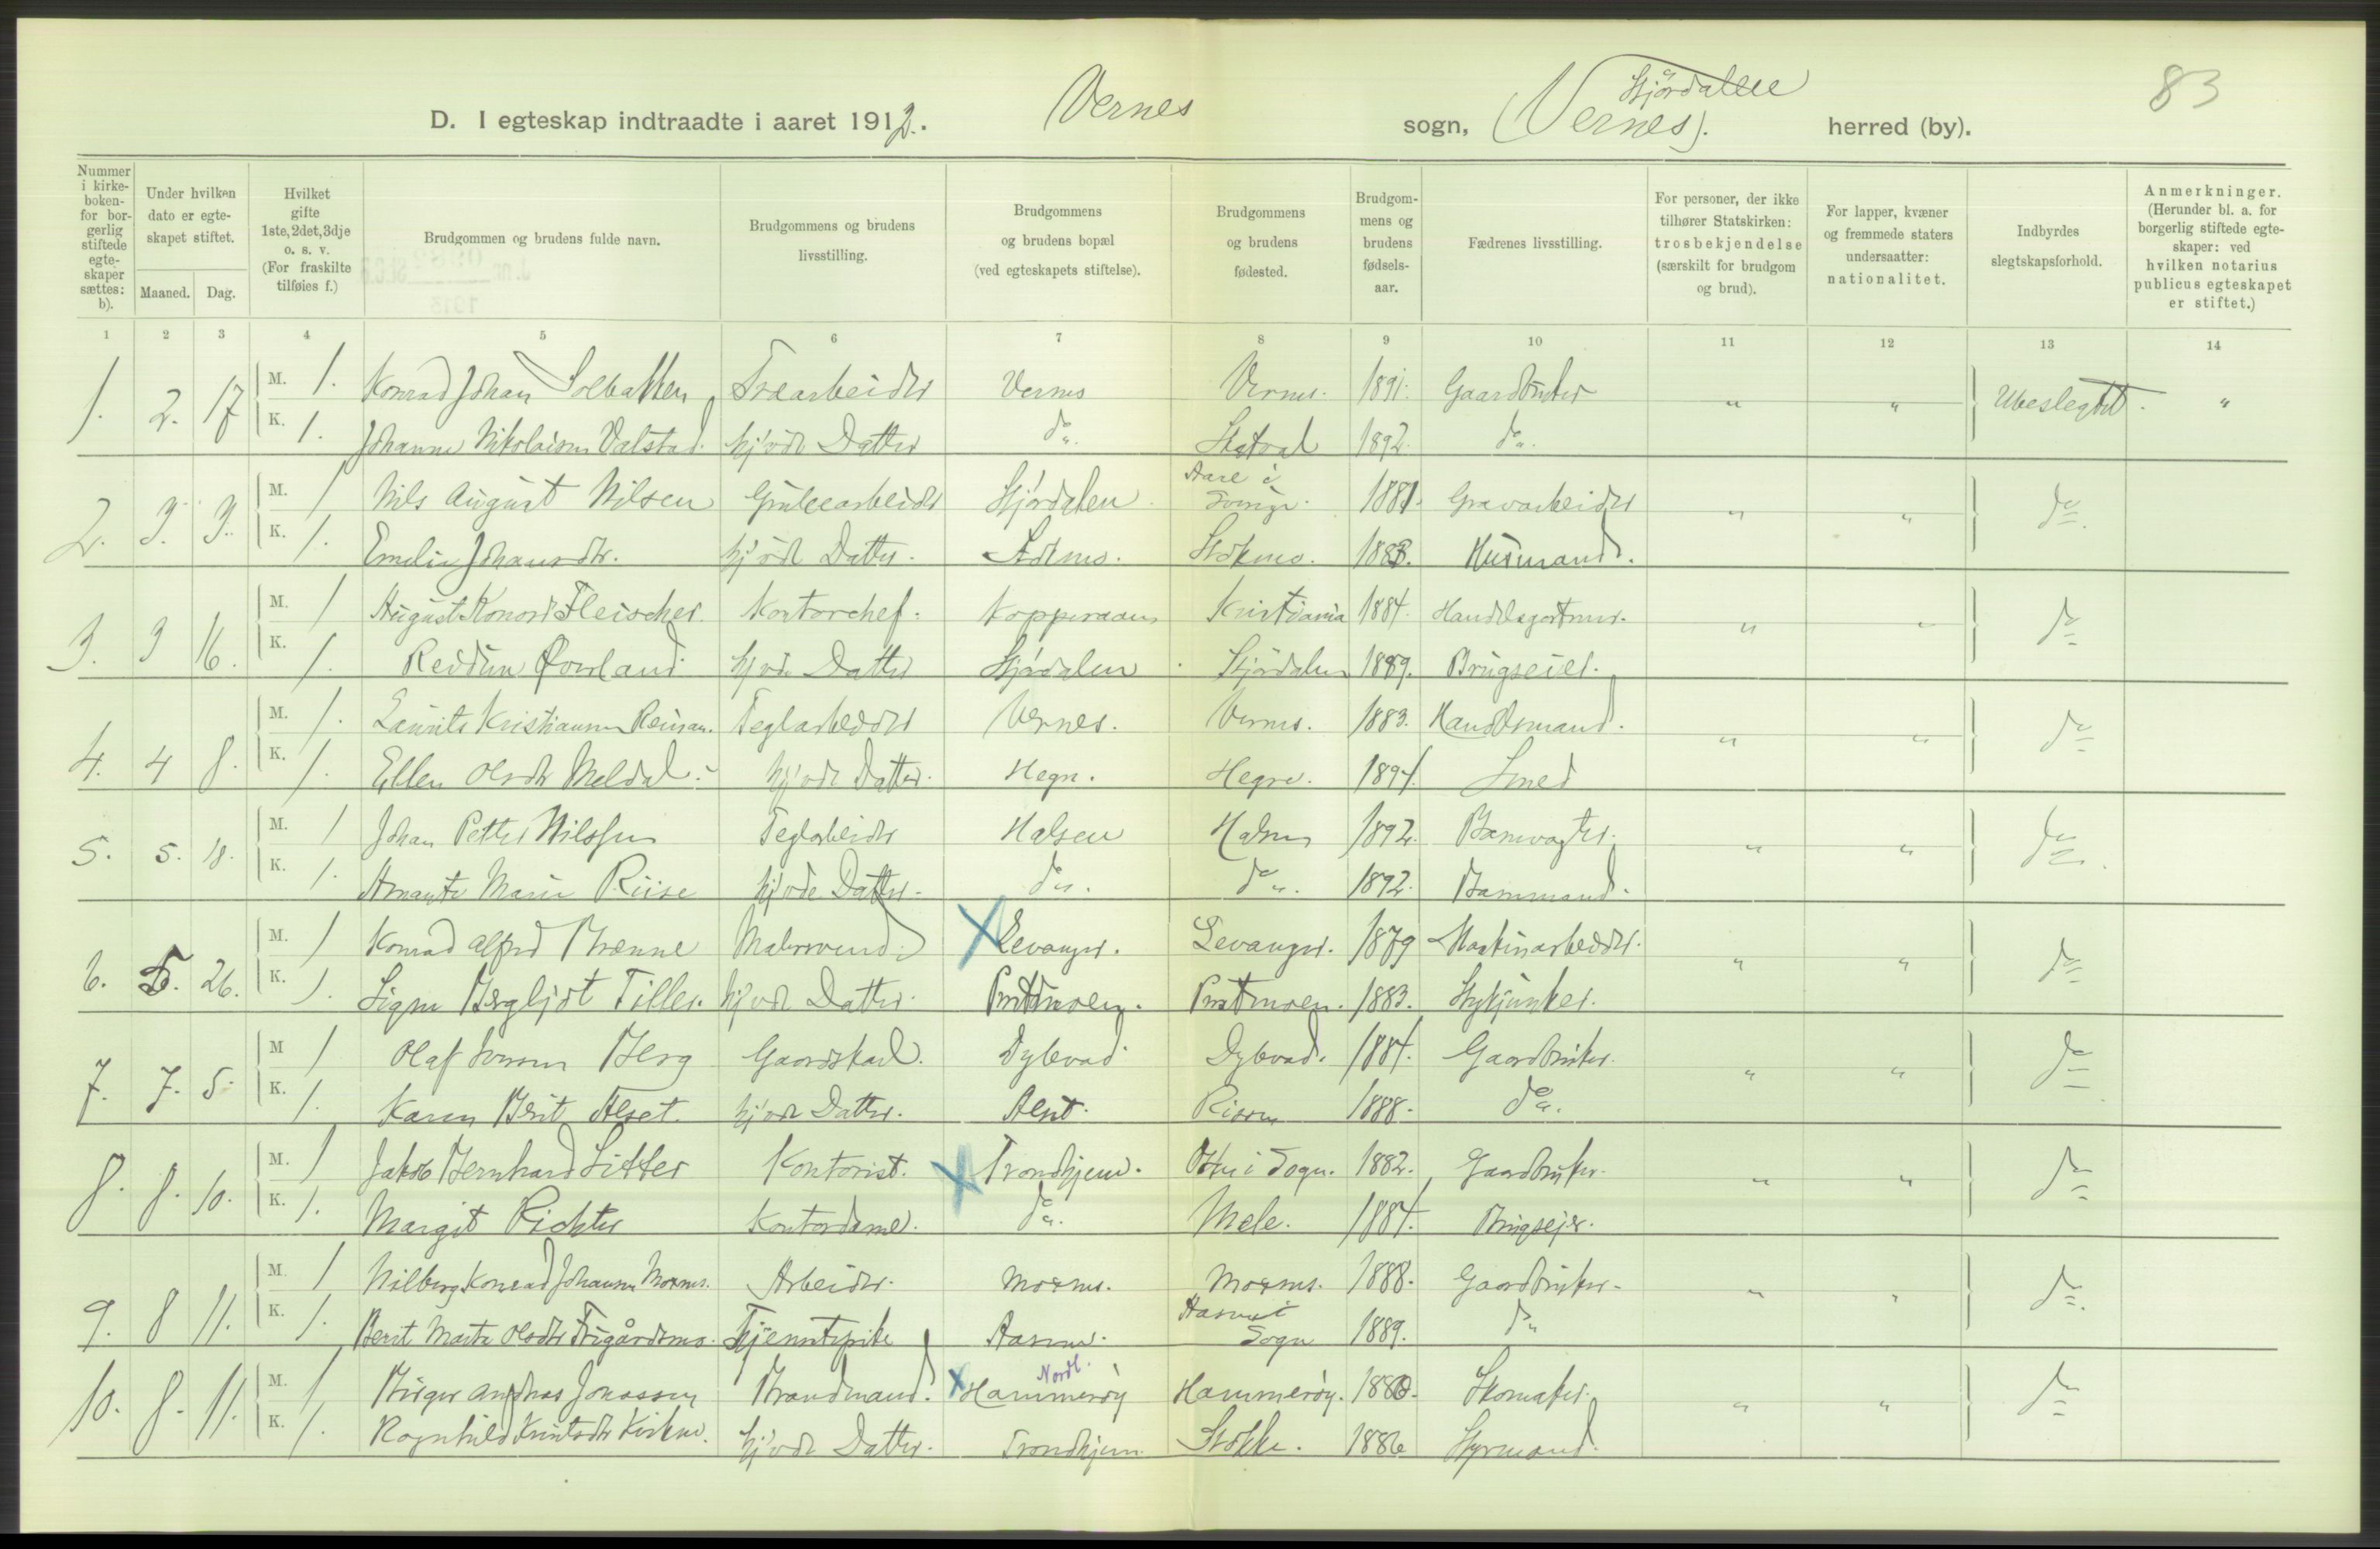 83
D. I egteskap indtraadte i aaret 1912. Vernes sogn, (Vernes). Stjørdalen herred (by).
Nummer i kirke-boken- for bor-gerlig stiftede egte-skaper sættes: b).
Under hvilken dato er egte-skapet stiftet.
Maaned. Dag.
Hvilket gifte 1ste, 2det, 3dje o. s. v. (For fraskilte tilføies f.)
Brudgommen og brudens fulde navn.
Brudgommens og brudens livsstilling.
Brudgommens og brudens bopæl (ved egteskapets stiftelse).
Brudgommens og brudens fødested.
Brudgom-mens og brudens fødsels-aar.
Fædrenes livsstilling.
For personer, der ikke tilhører Statskirken: trosbekjendelse (særskilt for brudgom og brud).
For lapper, kvæner og fremmede staters undersaatter: nationalitet.
Indbyrdes slegtskapsforhold.
Anmerkninger. (Herunder bl. a. for borgerlig stiftede egte-skaper: ved hvilken notarius publicus egteskapet er stiftet.)
1 2 3 4 5 6 7 8 9 10 11 12 13 14
1. 2. 17 M. 1. Konrad Johan Solbakken Træarbeider Vernes Vernes. 1891. Gaardbruker " " Ubeslegtet. "
K. 1. Johanne Nikolaisen Valstad. hj. vde Datter do. Skatval 1892. do.
2. 3. 3. M. 1 Nils August Nilsen Grubearbeider Stjørdalen Aare i Sverige. 1881. Gravarbeider " " do.
K. 1. Emelie Johansdtr. hj. vde Datter. Stokmo. 1883. Husmand.
3. 3 16. M. 1 August Konow Fleischer. Kontorchef. Kopperaaen Kristiania 1884. " " do
K. 1. Reidun Øverland hj. vde Datter Stjørdalen Stjørdalen 1889. Brugseier.
4. 4 8. M. 1. Laurits Kristiansen Reinaas. Teglarbeider Vernes. Vernes. 1883. Handelsmand. " " do
K. 1. Ellen Olsdtr Meldal. hj. vde Datter. Hegre. Hegre. 1894. Smed
5. 5. 18. M. 1 Johan Petter Nilssen Teglarbeider Halsen Halsen 1892. Banevogter. " " do.
K. 1. Amanda Marie Riise hj. vde Datter. do. do. 1892. Banemand.
6. 5. 26. M. 1 Konrad Alfred Brenne Malersvend X Levanger. Levanger. 1879 Maskinarbeider. " " do
K. 1. Signe Bergljot Tiller. hj. vde Datter. Prestmoen. Prestmoen. 1883. Stykjunker.
7. 7. 5. M 1 Olaf Berg Gaardskarl. Dybvad Dybvad. 1884. Gaardbruker. " " do
K. 1. Karen Berit Alset. hj. vde Datter. Alset. Rissen 1888. do.
8. 8. 10. M. 1 Jakob Bernhard Sitter Kontorist. X Trondhjem. i Sogn. 1882. Gaardbruker. " " do
K. 1. Margit Richter Kontordame. do. Mele. 1884. Brugseier.
9. 8 11. M. 1 Konrad Johannes Moxnes. Arbeider. Moxnes. Moxnes. 1888. Gaardbruker. " " do.
K. 1. Berit Marta Olsdtr Trøgårdsmo. Tjenestepike 1889. do
10. 8. 11. M. 1 Birger Andreas Jonassen Brandmand. X Hammerøy Nordl. Hammerøy. 1880. Skomaker. " " do
K. 1. Ragnhild Knutsdtr hj. vde Datter. Trondhjem. Stokke. 1886 Styrmand.